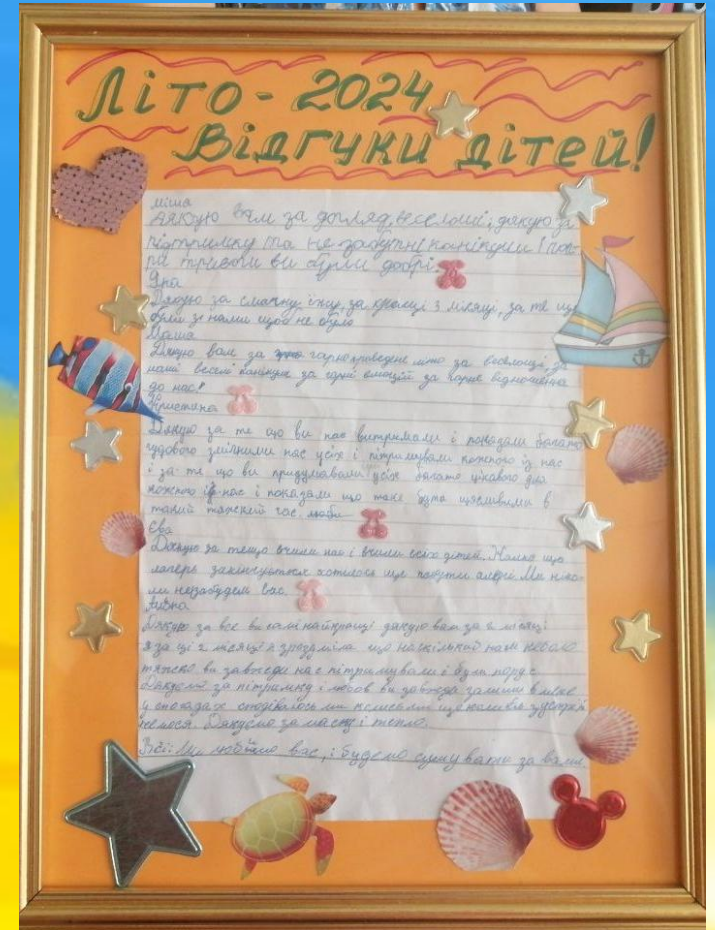 Літо - 2024
Відгуки дітей!
Міша
Дякую вам за догляд, веселощі, дякую за
підтримку та не забутні канікули і поп-
ри тривоги ви були добрі.
Яна
Дякую за смачну їжу, за кращі 2 місяці, за те що
були з нами щоб не було
Маша
Дякую вам за гарно проведене літо за веселощі, за
наші веселі канікули за гарні емоції за гарне відношення
до нас!
Кристина
Дякую за те що ви нас витримали і показали багато
чудового злічили нас усіх і пітримували кожного із нас
і за те що ви придумавали усіх багато цікавого для
кожного із нас і показали що може бути щасливими в
такий тяжкий час.
Єва
Дякую за тещо вчили нас і вчили всіх дітей. Жалко що
лагерь закінчується хотілося ще побути алє Ми ніко-
ли незабудем вас.
Дякую за все ви самі найкращі дякую вам за 2 місяці
я за ці 2 місяці я зрозуміла що наскільки нам небуло
тяжко ви завжди нас пітримували і були поруч
Дякуємо за пітримку і любов ви завжди залиши
у спогадах сподіваюсь ми з вами ще колись зустрі
немося. Дякуємо за ласку і тепло.
Всі: Ми любимо вас, і будемо сумувати за вами